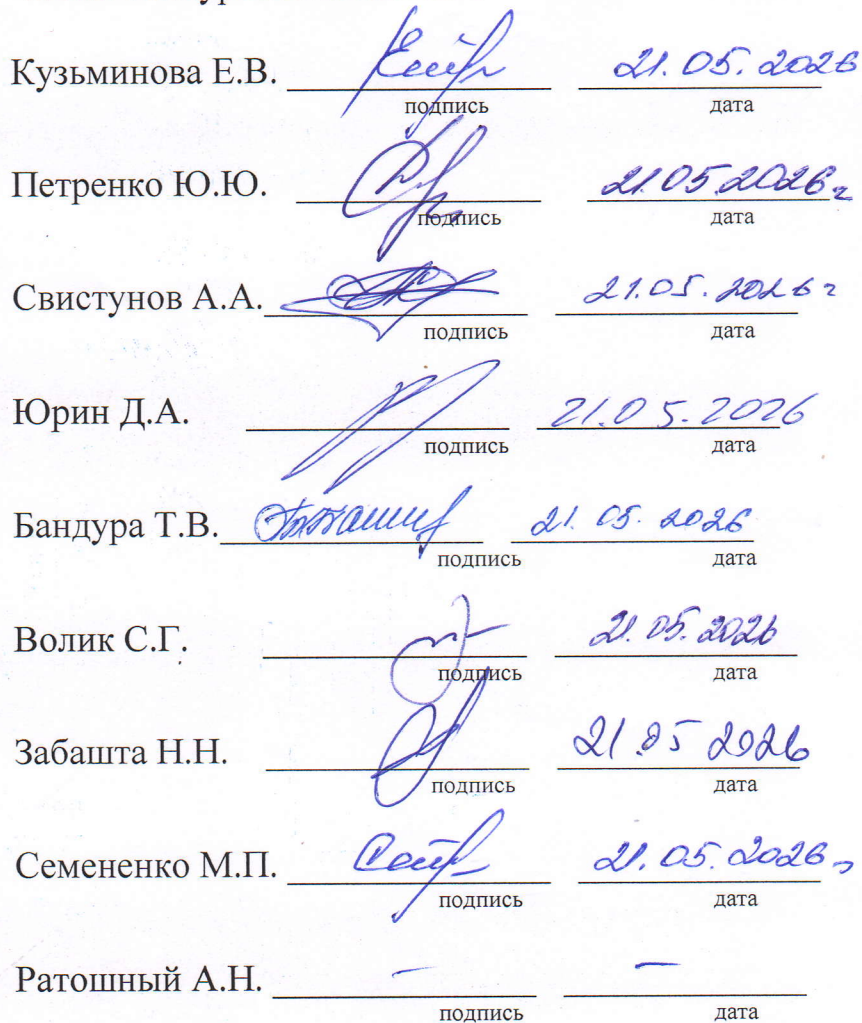 Кузьминова Е.В. 21.05.2026
подпись дата
Петренко Ю.Ю. 21.05.2026г
подпись дата
Свистунов А.А. 21.05.2026г
подпись дата
Юрин Д.А. 21.05.2026
подпись дата
Бандура Т.В. 21.05.2026
подпись дата
Волик С.Г. 21.05.2026
подпись дата
Забашта Н.Н. 21.05 2026
подпись дата
Семененко М.П. 21.05.2026г
подпись дата
Ратошный А.Н. - -
подпись дата